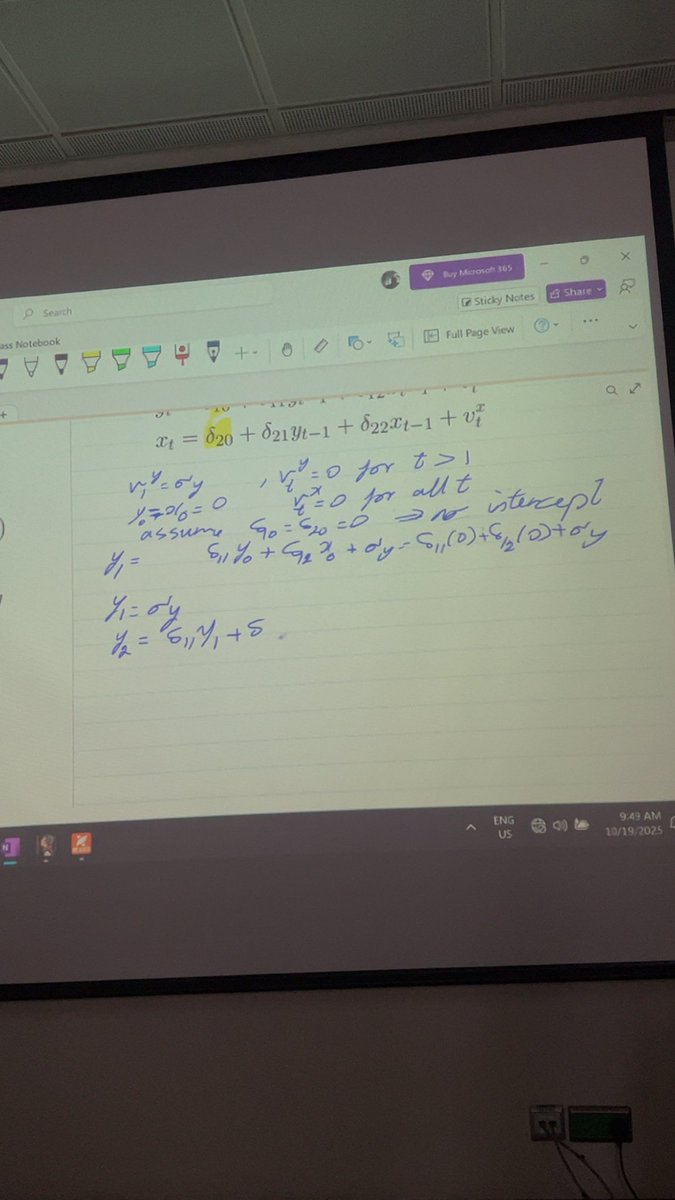 Buy Microsoft 365
Search
Sticky Notes
Share
ass Notebook
Full Page View
xₜ = δ₂₀ + δ₂₁yₜ₋₁ + δ₂₂xₜ₋₁ + vₜˣ
v₁ʸ = σy , vₜʸ = 0 for t > 1
y₀ = x₀ = 0 vₜˣ = 0 for all t
assume δ₁₀ = δ₂₀ = 0 ⇒ no intercept
y₁ = δ₁₁y₀ + δ₁₂x₀ + σy = δ₁₁(0) + δ₁₂(0) + σy
y₁ = σy
y₂ = δ₁₁y₁ + δ
ENG
US
9:49 AM
10/19/2025